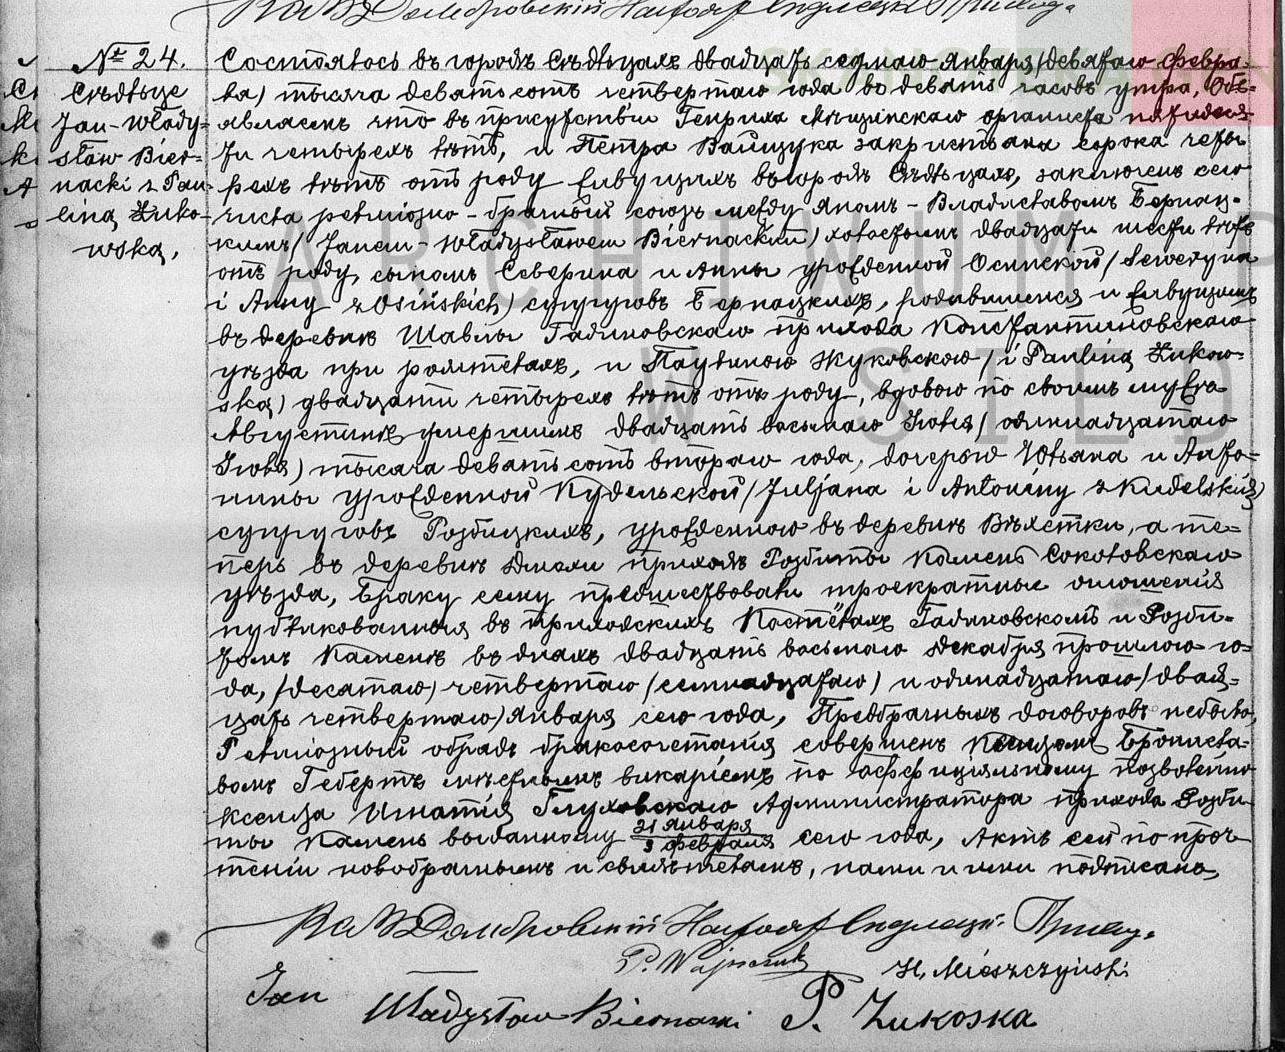 № 24.
Сѣдльце
Jan-Włady-
sław Bier-
nacki z Pau-
liną Żuko-
wską,
Состоялось въ городѣ Сѣдльцахъ двадцать седьмаго Января /девятаго Февра-
ля) тысяча девятьсотъ четвертаго года въ девять часовъ утра. Объ-
являемъ что въ присутствіи Генриха Мѣщинскаго органиста пятидеся-
ти четырехъ лѣтъ, и Петра Вайщука закристіана сорока четы-
рехъ лѣтъ отъ роду жавущихъ въ городѣ Сѣдльцахъ, заключенъ сего
числа религіозно-брачный союзъ между Яномъ-Владиславомъ Бернац-
кимъ/Janem-Władysławem Biernackim) холостымъ двадцати шести лѣтъ
отъ роду, сыномъ Северина и Анны урожденной Осинской/Seweryna
i Anny z Osińskich) супруговъ Бернацкихъ, родившимся и жавущимъ
въ деревнѣ Шавлы Гадиновскаго прихода Константиновскаго
уѣзда при родителяхъ, и Паулиною Жуковскою/i Pauliną Żukow-
ską) двадцати четырехъ лѣтъ отъ роду, вдовою по своемъ мужѣ
Августинѣ умершемъ двадцать восьмаго Іюня/одиннадцатаго
Іюля) тысяча девятьсотъ втораго года, дочерью Юльяна и Анто-
нины урожденной Кудельской/Juljana i Antoniny z Kudelskich)
супруговъ Розбицкихъ, урожденною въ деревнѣ а те-
перь въ деревнѣ приходѣ Розбиты Камень Соколовскаго
уѣзда, Браку сему предшествовали троекратныя оглашенія
публикованныя въ приходскихъ Костёлахъ Гадиновскомъ и Розби-
томъ Каменѣ въ дняхъ двадцать восьмаго Декабря прошлого го-
да, /десятаго) четвертаго /семнадцатаго) и одинадцатаго/двад-
цать четвертаго) Января сего года, Предбрачныхъ договоровъ небыло,
Религіозный обрядъ бракосочетанія совершенъ Ксендзомъ Брониста-
вомъ Гебертъ мѣстнымъ викаріемъ по позволенію
ксендза Игнатія Глуховскаго Администратора прихода Розби-
ты Камень выданному 21 Января / 3 Февраля сего года, Актъ сей по проч-
теніи новобрачнымъ и свидѣтелямъ, нами и ими подписанъ,
Домбровскій Настоят Сѣдлецк. Приход.
P. Wajszczuk
H. Mieszczyński
Jan
Władysław Biernacki P. Żukoska
ARCHIWUM P
W SIED